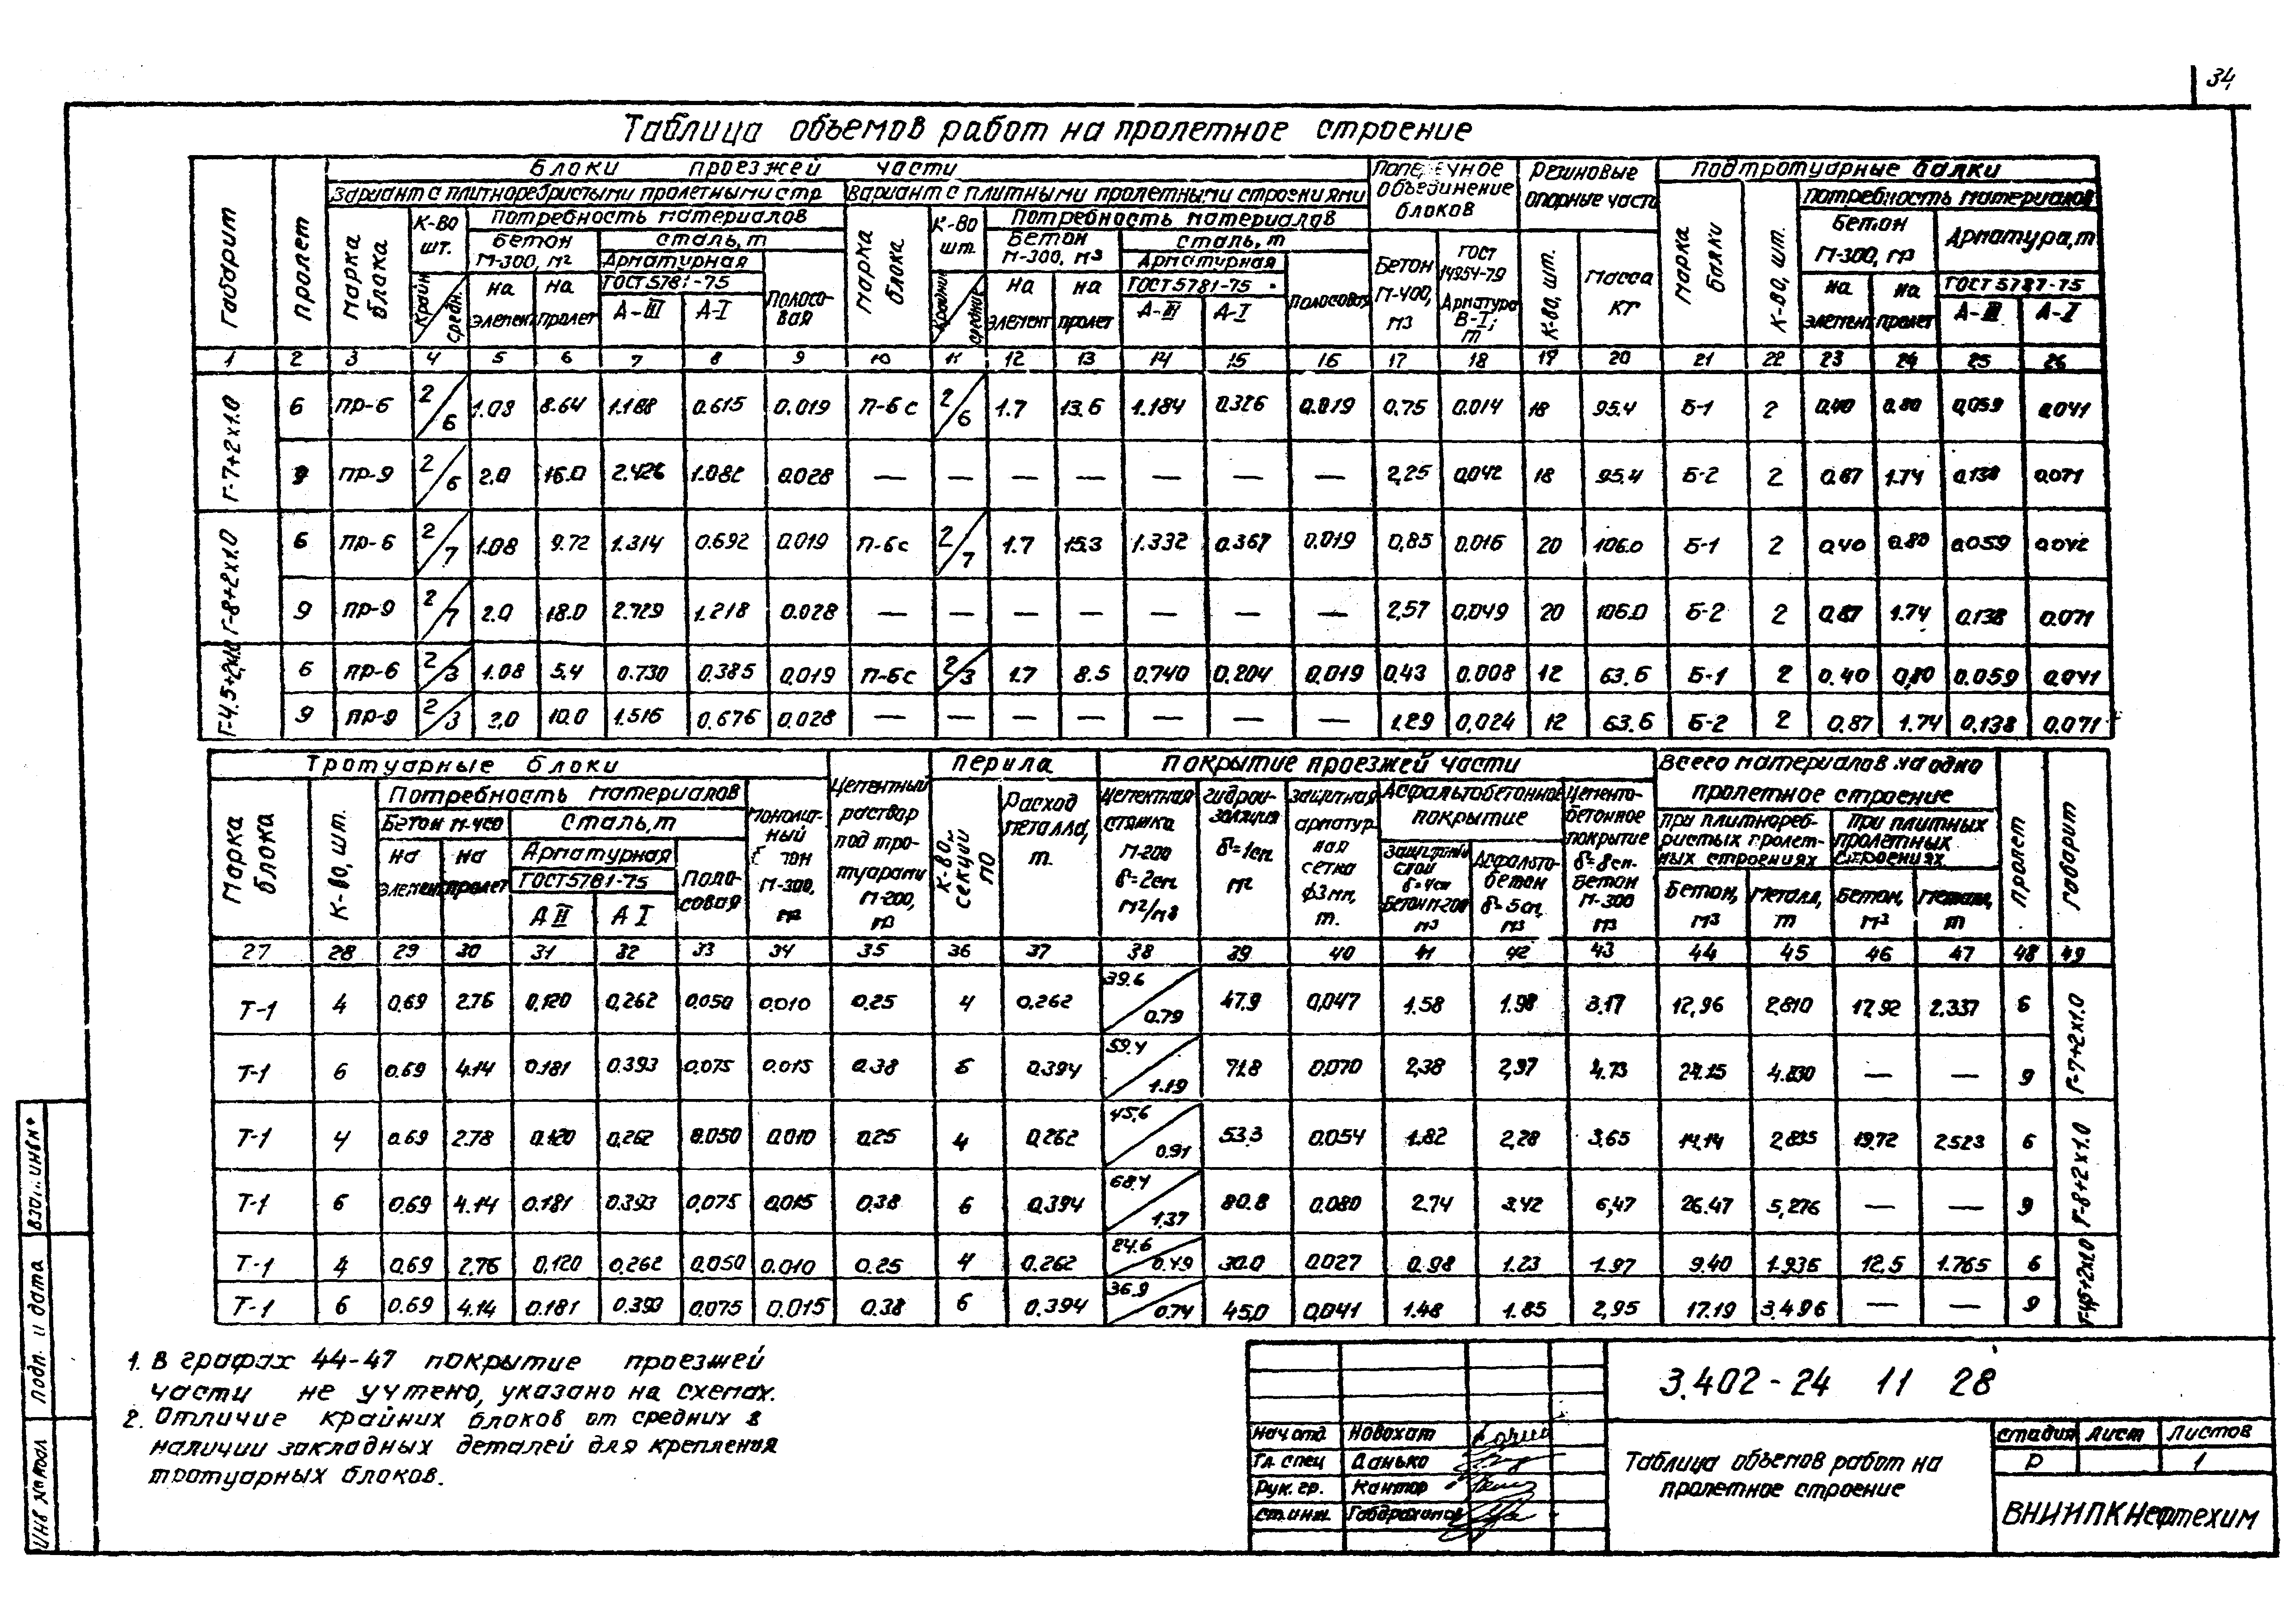 34
Таблица объемов работ на пролетное строение
Габарит
Пролет
Блоки проезжей части
Поперечное объединение блоков
Резиновые опорные части
Подтротуарные балки
Вариант с плитноребристыми пролетными стр
Вариант с плитными пролетными строениями
Марка блока
К-во шт.
Потребность материалов
Бетон М-300, м²
Сталь, т
Арматурная
ГОСТ 5781-75
Полосовая
Крайн
средн.
на элемент
на пролет
А-III
А-I
Марка блока
К-во шт.
Потребность материалов
Бетон М-300, м3
Сталь, т
Арматурная
ГОСТ 5781-75
Полосовая
Крайние
средние
на элемент
на пролет
А-III
А-I
Бетон М-400, м3
ГОСТ 14954-79 Арматура В-I; т
К-во, шт.
Масса кг
Марка балки
К-во, шт.
Потребность материалов
Бетон М-300, м3
Арматура, т
на элемент
на пролет
ГОСТ 5787-75
А-III
А-I
1 2 3 4 5 6 7 8 9 10 11 12 13 14 15 16 17 18 19 20 21 22 23 24 25 26
Г-7+2х1.0
6 ПР-6 2/6 1.08 8.64 1.168 0.615 0.019 П-6с 2/6 1.7 13.6 1.184 0.326 0.019 0,75 0.014 18 95.4 Б-1 2 0,40 0,80 0,059 0,041
9 ПР-9 2/6 2.0 16.0 2.426 1.082 0.028 — — — — — — — 2,25 0,042 18 95.4 Б-2 2 0,87 1.74 0.138 0.071
Г-8+2х1.0
6 ПР-6 2/7 1.08 9.72 1.314 0.692 0.019 П-6с 2/7 1.7 15.3 1.332 0.367 0.019 0,85 0.016 20 106.0 Б-1 2 0,40 0,80 0.059 0.042
9 ПР-9 2/7 2.0 18.0 2.729 1.218 0.028 — — — — — — — 2,57 0,049 20 106.0 Б-2 2 0,87 1.74 0.138 0.071
Г-4.5+2х1.0
6 ПР-6 2/3 1.08 5.4 0.730 0.385 0,019 П-6с 2/3 1.7 8.5 0.740 0.204 0.019 0,43 0.008 12 63.6 Б-1 2 0.40 0,80 0.059 0.041
9 ПР-9 2/3 2.0 10.0 1.516 0.676 0.028 — — — — — — — 1.29 0,024 12 63.6 Б-2 2 0.87 1.74 0.138 0.071
Тротуарные блоки
Цементный раствор под тротуарами М-200, м3
Перила
Покрытие проезжей части
Всего материалов на одно пролетное строение
Пролет
Габарит
Марка блока
К-во, шт.
Потребность материалов
Бетон М-400
Сталь, т
на элемент
на пролет
Арматурная
ГОСТ 5781-75
А II
А I
Полосовая
Монолитный бетон М-300, м3
К-во, секций ПО
Расход металла, т.
Цементная стяжка М-200 δ=2см. м2/м3
Гидроизоляция δ=1см. м2
Защитная арматурная сетка ф3мм, т.
Асфальтобетонное покрытие
Защитный слой δ=4см Бетон М-200 м3
Асфальтобетон δ=5см, м3
Цементобетонное покрытие δ=8см. Бетон М-300 м3
при плитноребристых пролетных строениях
при плитных пролетных строениях
Бетон, м3
Металл, т
Бетон, м3
Металл, т
27 28 29 30 31 32 33 34 35 36 37 38 39 40 41 42 43 44 45 46 47 48 49
Т-1 4 0.69 2.76 0,120 0,262 0.050 0.010 0.25 4 0,262 39.6/0.79 47.9 0,047 1.58 1.98 3.17 12,96 2,810 17,92 2.337 6
Г-7+2х1.0
Т-1 6 0.69 4.14 0.181 0.393 0,075 0.015 0.38 6 0.394 59.4/1.19 71.8 0.070 2,38 2,97 4.73 24.15 4.830 — — 9
Т-1 4 0.69 2.78 0.120 0,262 0.050 0.010 0,25 4 0,262 45,6/0.91 53,3 0.054 1.82 2,28 3,65 14,14 2,835 19,72 2523 6
Г-8+2х1.0
Т-1 6 0.69 4.14 0.181 0.393 0,075 0,015 0.38 6 0.394 68.4/1.37 80.8 0.080 2.74 3.42 6,47 26.47 5,276 — — 9
Т-1 4 0.69 2.76 0.120 0,262 0.050 0.010 0.25 4 0.262 24.6/0.49 30.0 0.027 0.98 1.23 1.97 9.40 1.936 12,5 1.765 6
Г-4,5+2х1.0
Т-1 6 0.69 4.14 0.181 0.393 0,075 0.015 0.38 6 0.394 36.9/0.74 45,0 0,041 1.48 1.85 2,95 17.19 3.496 — — 9
1. В графах 44-47 покрытие проезжей
части не учтено, указано на схемах.
2. Отличие крайних блоков от средних в
наличии закладных деталей для крепления
тротуарных блоков.
3.402-24 11 28
Нач.отд Новохат
Гл. спец Данько
Рук. гр. Кантор
Ст.инж.
Таблица объемов работ на
пролетное строение
Стадия Лист Листов
Р 1
ВНИИПКНефтехим
Взам. инв №
Подп. и дата
Инв № подл